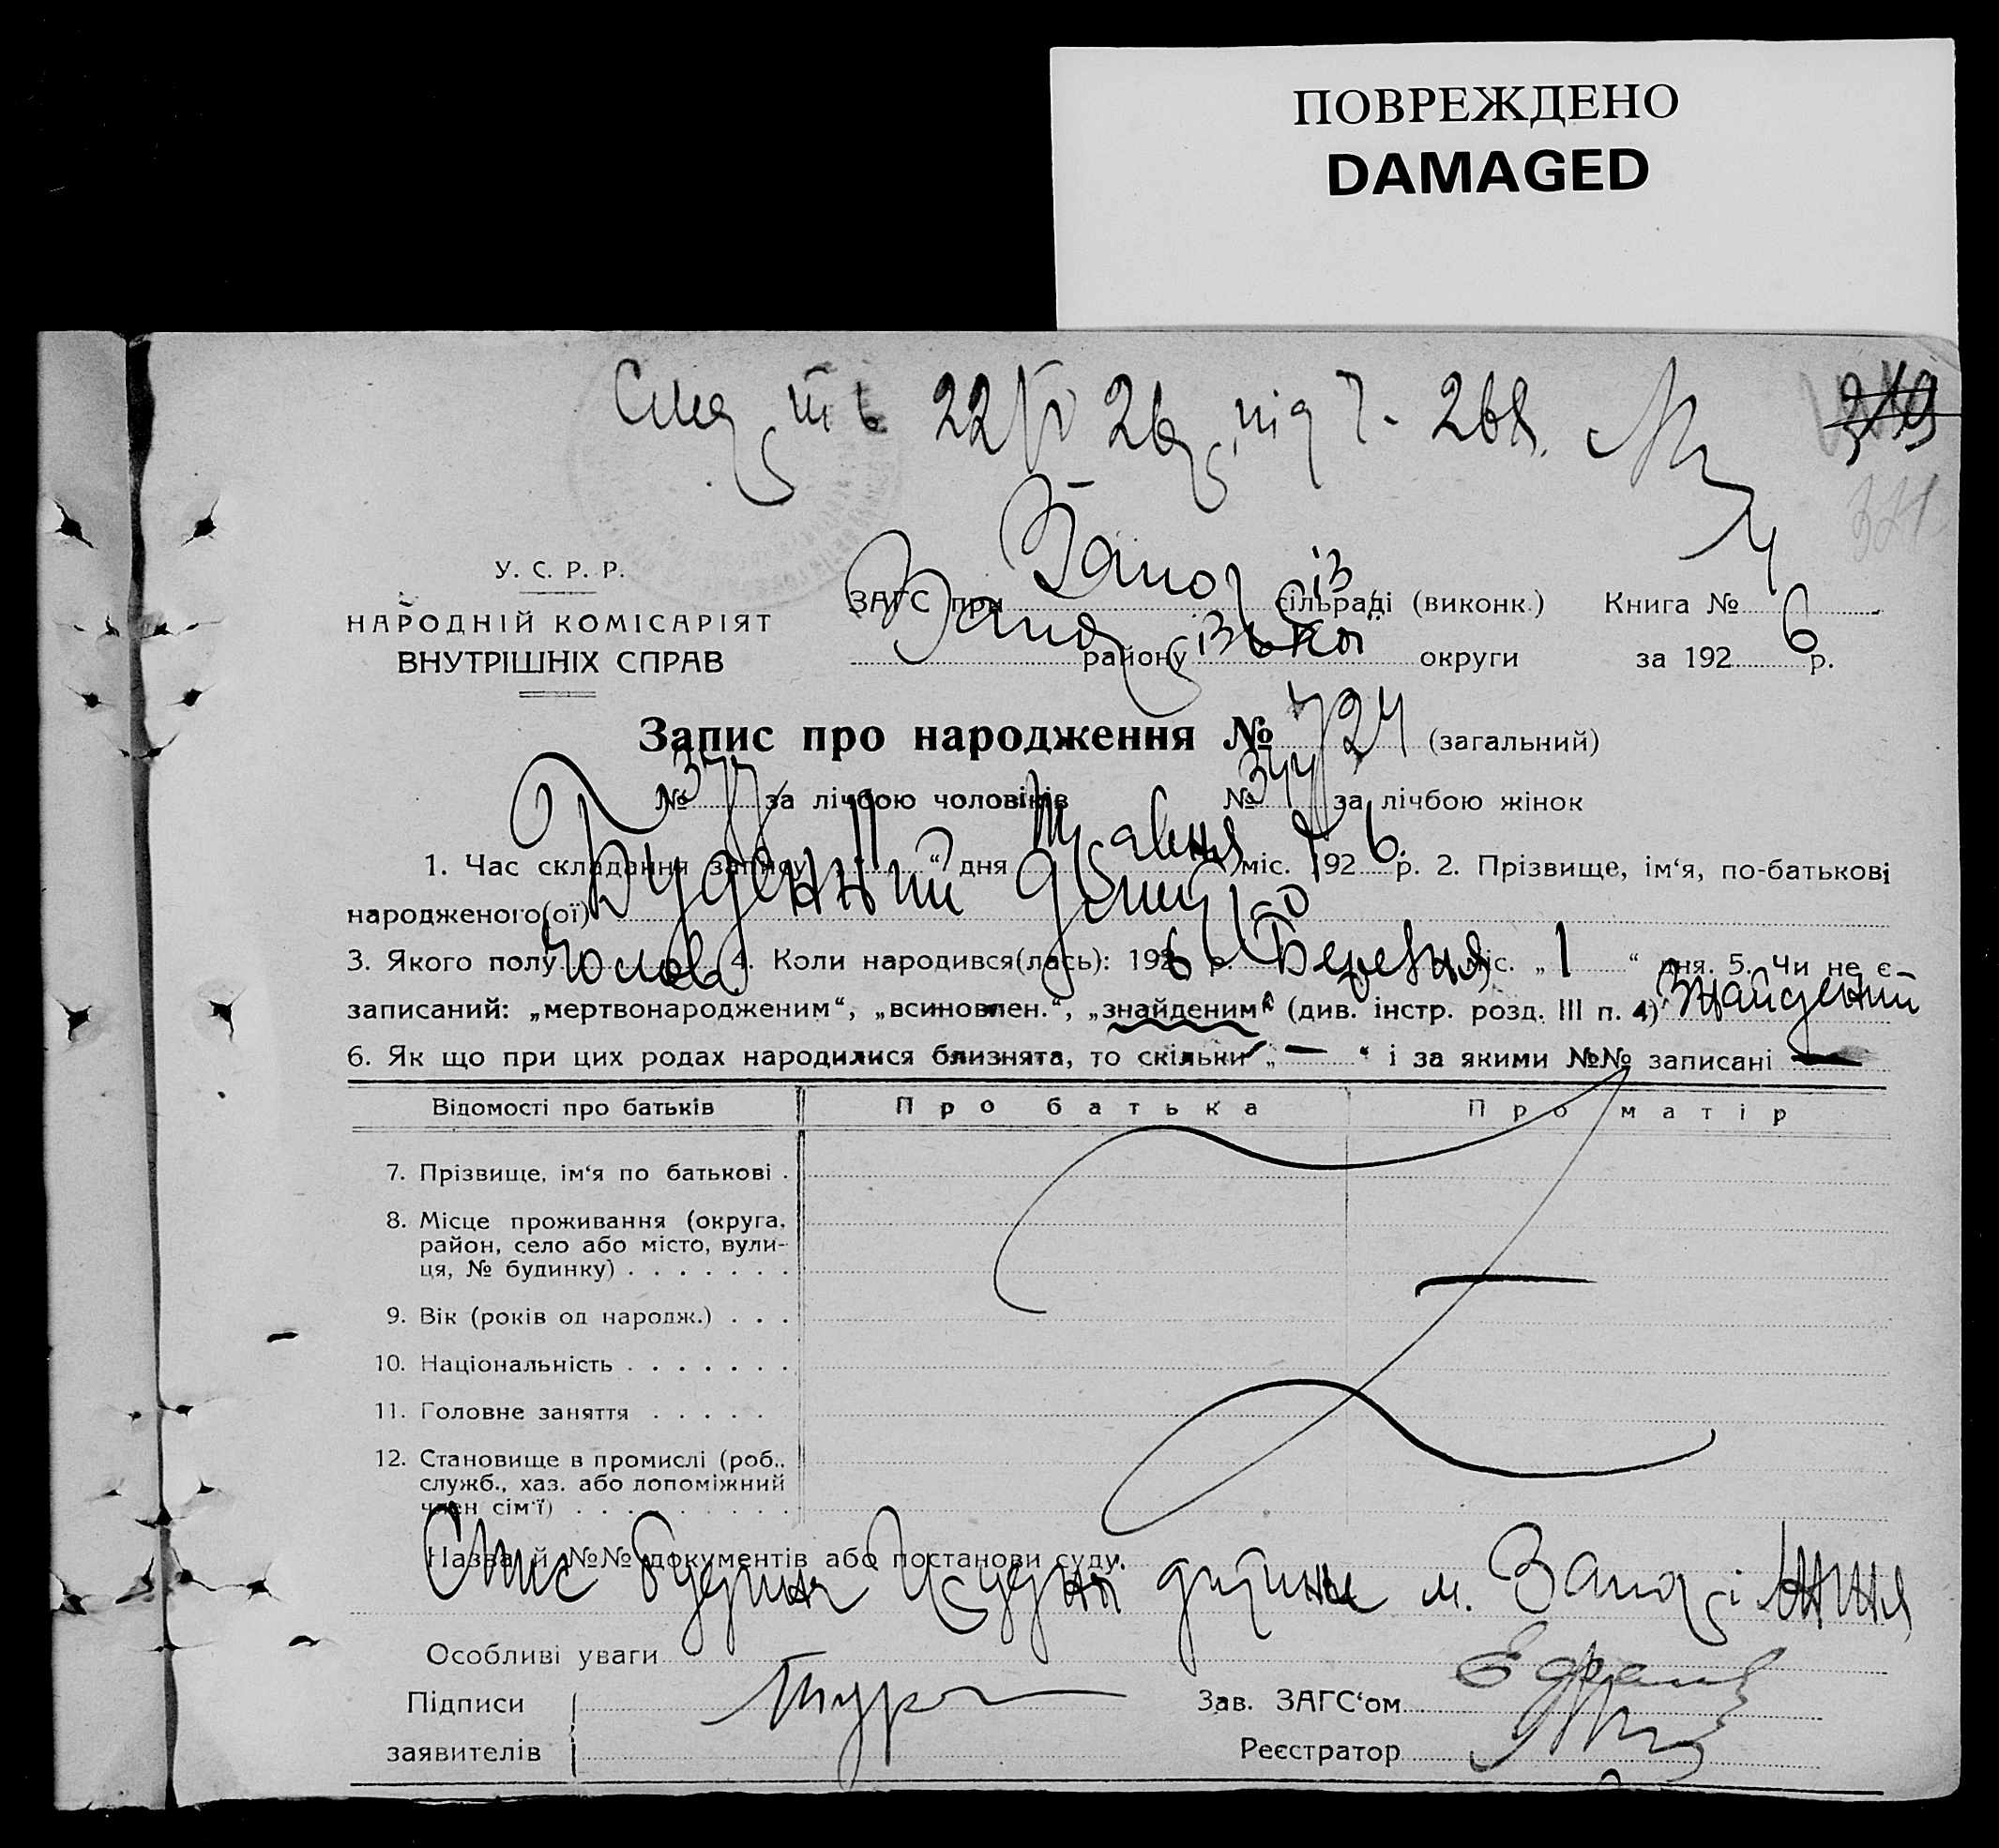 ПОВРЕЖДЕНО
DAMAGED
22/V 26 р. під ч. 268.
У. С. Р. Р.
НАРОДНІЙ КОМІСАРІЯТ
ВНУТРІШНІХ СПРАВ
ЗАГС при Запоріз сільраді (виконк.) Книга №
Запорізької району округи за 1926 р.
Запис про народження № 724 (загальний)
№ 377 за лічбою чоловіків № 344 за лічбою жінок
1. Час складання запису „11“ дня Травня міс. 1926 р. 2. Прізвище, ім‘я, по-батькові
народженого(ої) Буденний
3. Якого полу Чолов. 4. Коли народився(лась): 1926 р. Березня міс. „1“ дня. 5. Чи не є
записаний: „мертвонародженим“, „всиновлен.“, „знайденим“ (див. інстр. розд. III п. 4) Знайдений
6. Як що при цих родах народилися близнята, то скільки „—“ і за якими №№ записані —
Відомості про батьків Про батька Про матір
7. Прізвище, ім‘я по батькові .
8. Місце проживання (округа,
район, село або місто, вули-
ця, № будинку) . . . . . . .
9. Вік (років од народж.) . . .
10. Національність . . . . . . .
11. Головне заняття . . . . .
12. Становище в промислі (роб.,
служб., хаз. або допоміжний
член сім‘ї) . . . . . . . . .
Назва й №№ документів або постанови суду.
дитини м. Запоріжжя
Особливі уваги
Підписи
заявителів
Зав. ЗАГС‘ом
Реєстратор